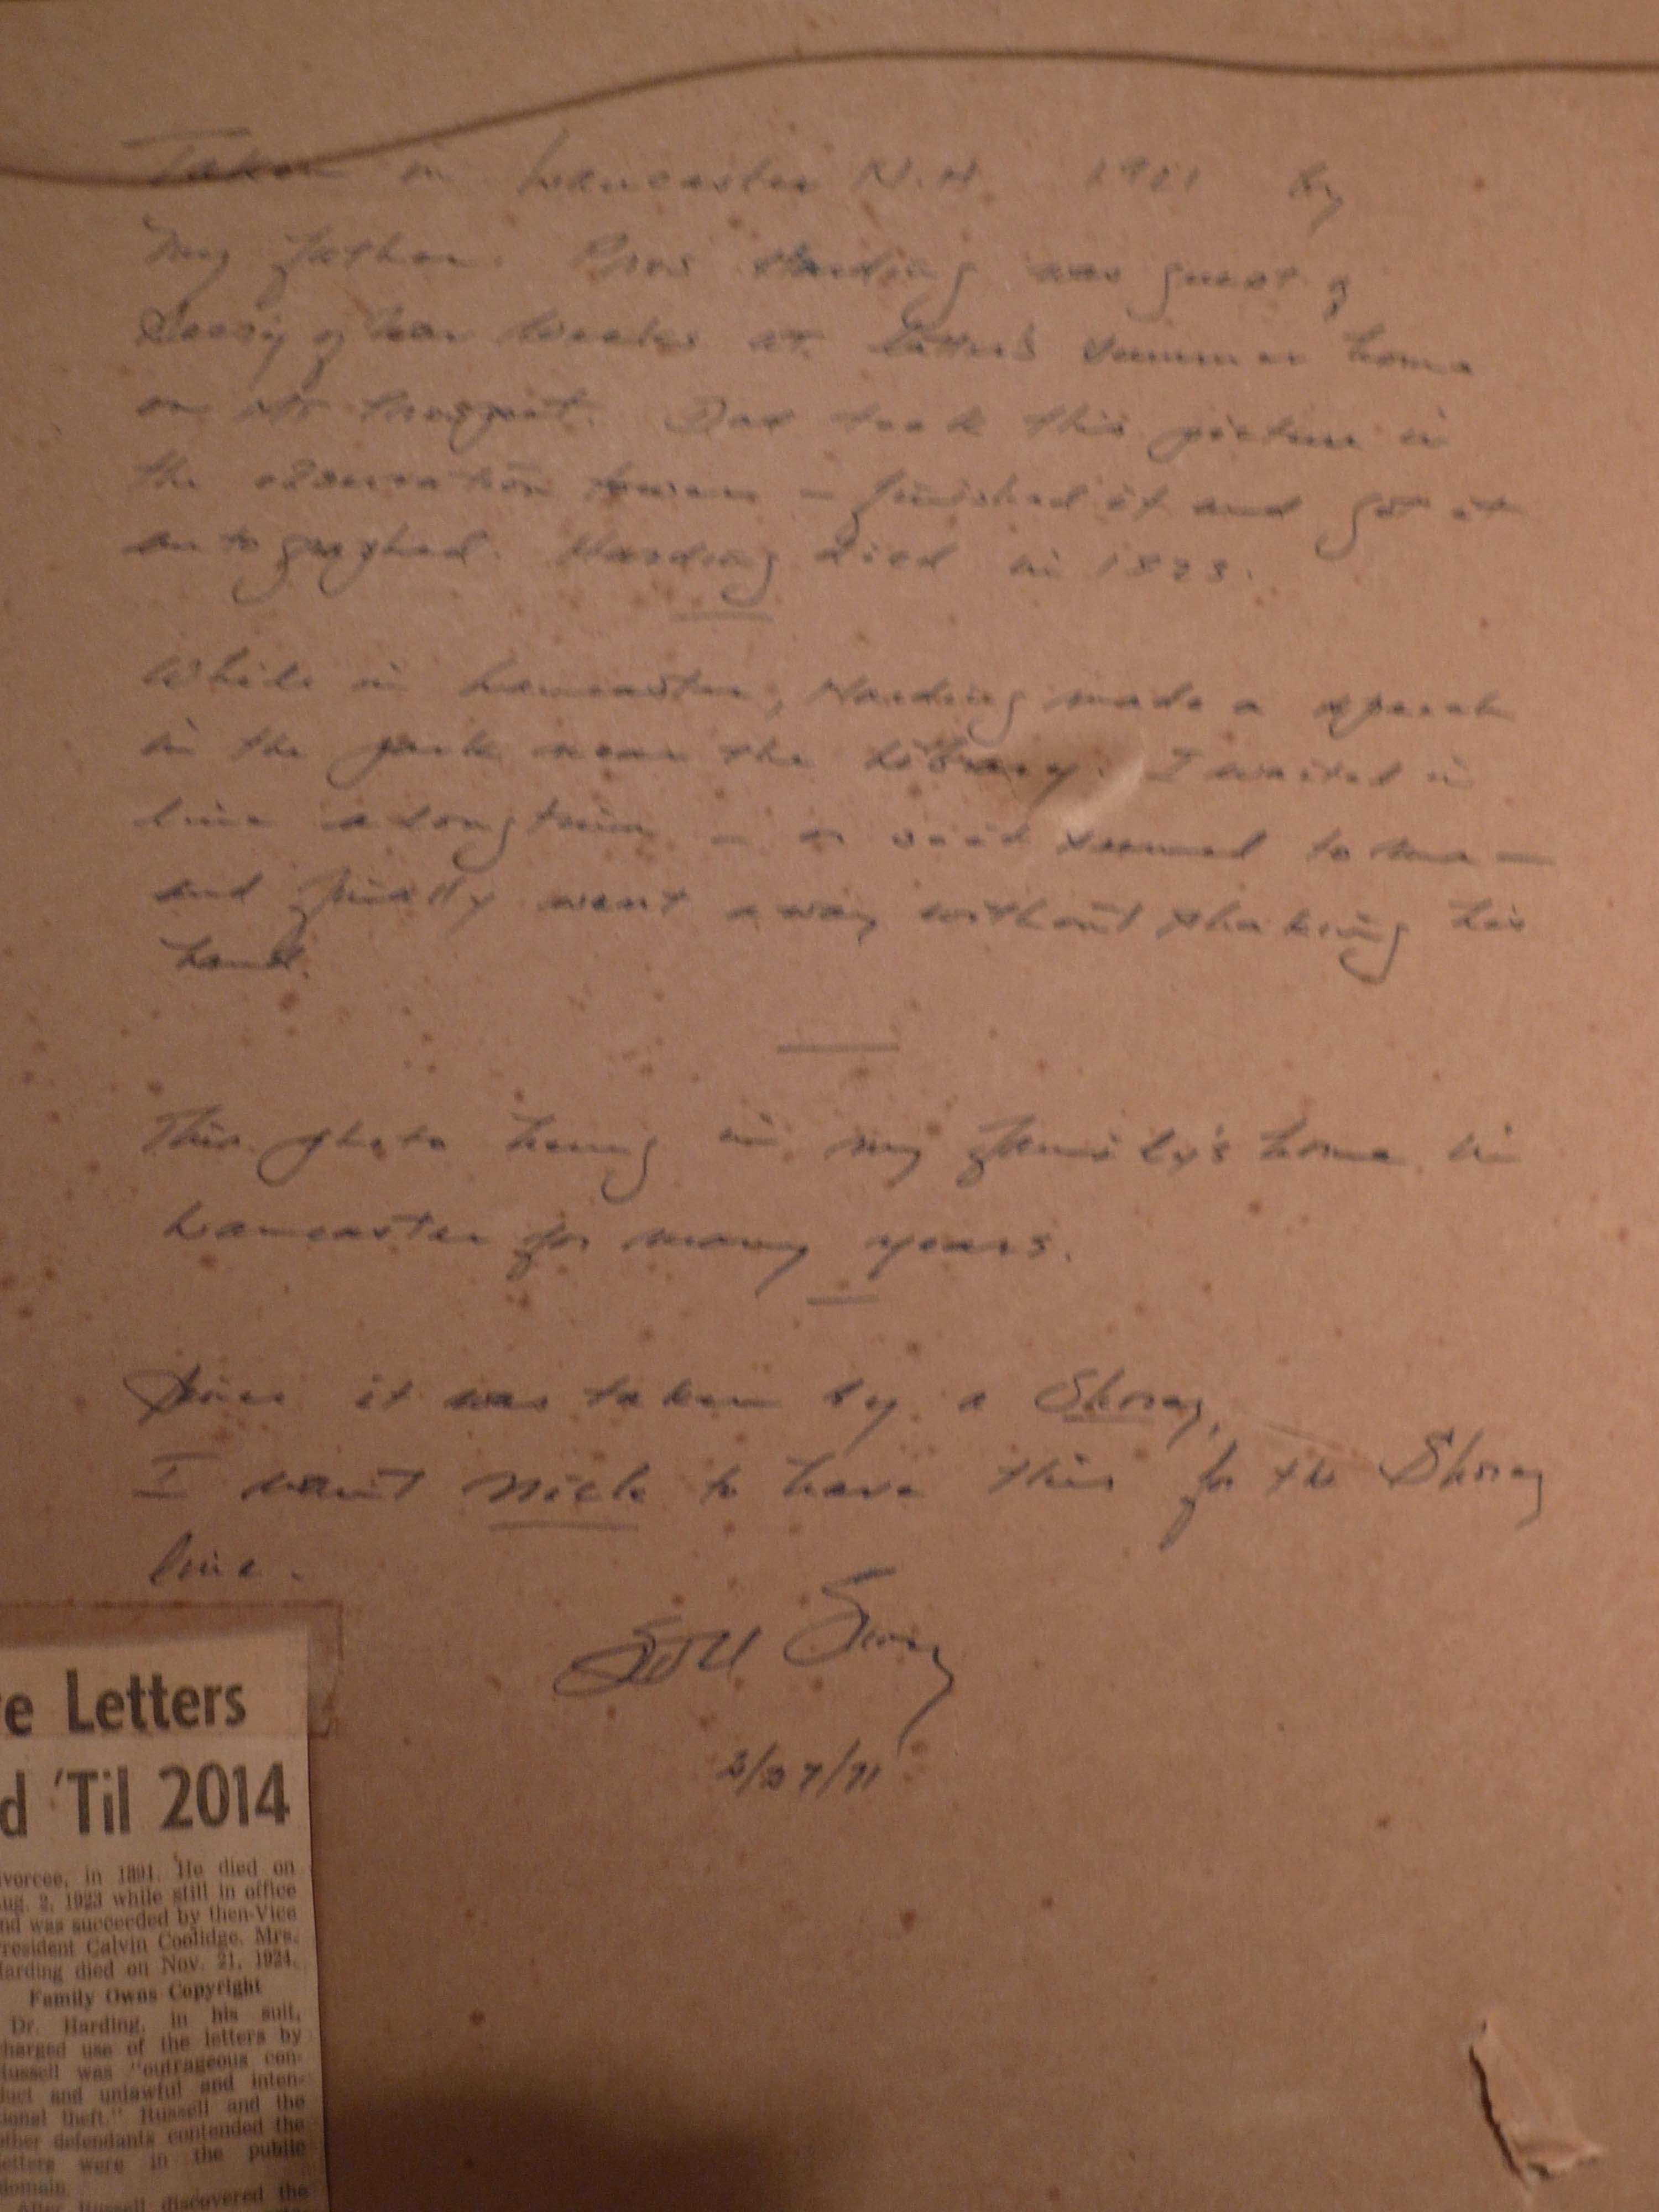 Taken in Lancaster N.H. 1921 by
my father. Pres Harding was guest of
Secy of War Weeks at latter's summer home
on Mt Prospect. Dad took this picture in
the observation tower — finished it and got it
autographed. Harding died in 1923.
While in Lancaster, Harding made a speech
in the park near the library. I waited in
line a long time — or so it seemed to me —
and finally went away without shaking his
hand.
This photo hung in my family's home in
Lancaster for many years.
Since it was taken by a Shorey,
I want Nick to have this for the Shorey
line.
Shorey
3/27/71
e Letters
d 'Til 2014
ivorcee, in 1891. He died on
ug. 2, 1923 while still in office
nd was succeeded by then-Vice
resident Calvin Coolidge. Mrs.
arding died on Nov. 21, 1924.
Family Owns Copyright
Dr. Harding, in his suit,
harged use of the letters by
ussell was "outrageous con-
duct and unlawful and inten-
ional theft." Russell and the
ther defendants contended the
etters were in the public
domain.
After Russell discovered the